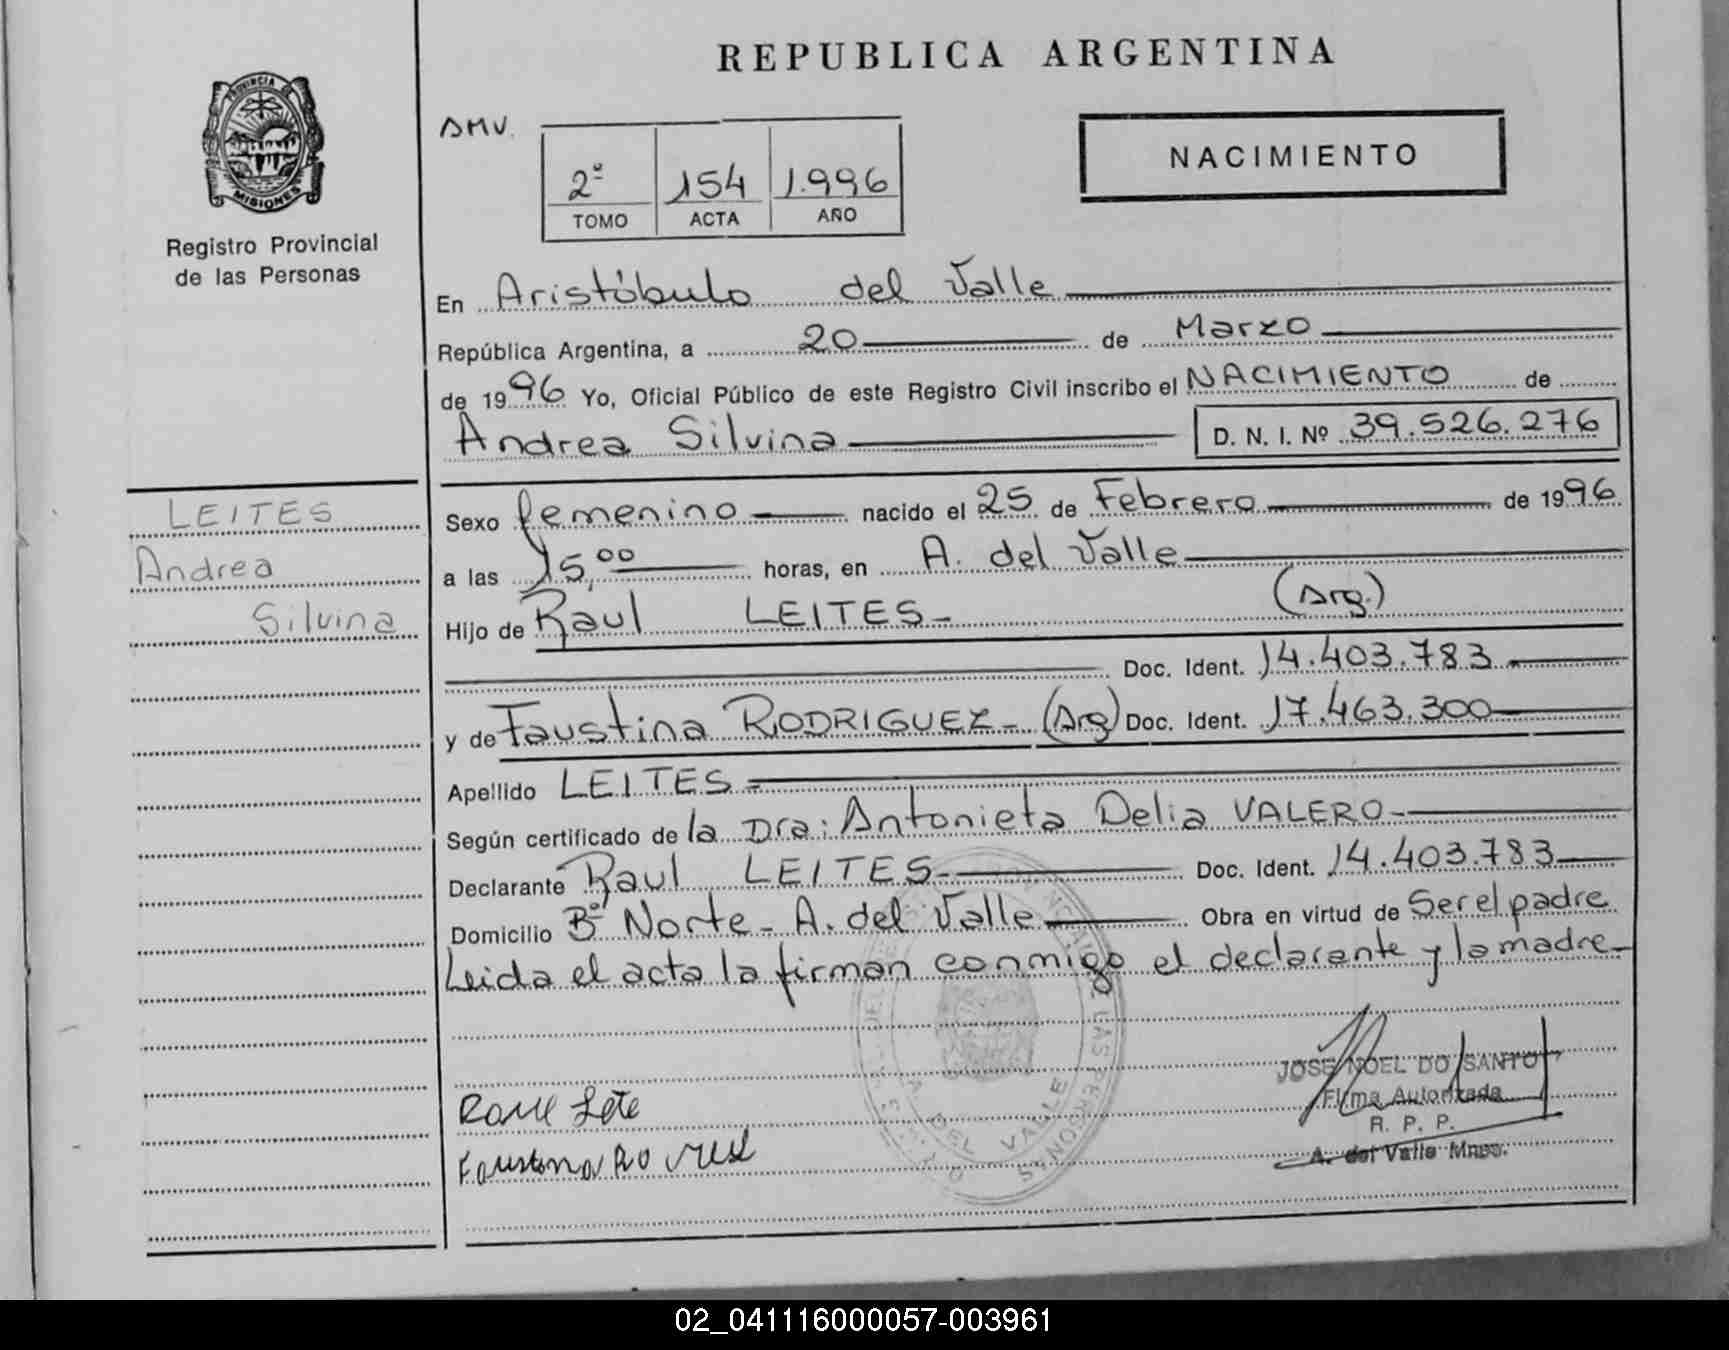 REPUBLICA ARGENTINA
PROVINCIA DE
MISIONES
Registro Provincial
de las Personas
AMV.
2º 154 1.996
TOMO ACTA AÑO
NACIMIENTO
En Aristóbulo del Valle
República Argentina, a 20 de Marzo
de 1996 Yo, Oficial Público de este Registro Civil inscribo el NACIMIENTO de
Andrea Silvina D. N. I. Nº 39.526.276
LEITES
Andrea
Silvina
Sexo femenino nacido el 25 de Febrero de 1996
a las 15,00 horas, en A. del Valle
Hijo de Raul LEITES- (Arg.)
Doc. Ident. 14.403.783
y de Faustina RODRIGUEZ- (Arg) Doc. Ident. 17.463.300
Apellido LEITES
Según certificado de la Dra: Antonieta Delia VALERO-
Declarante Raul LEITES- Doc. Ident. 14.403.783
Domicilio Bº Norte- A. del Valle Obra en virtud de Ser el padre
Leida el acta la firman conmigo el declarante y la madre-
JOSE NOEL DO SANTO
Firma Autorizada
R. P. P.
A. del Valle Mnes.
DEL VALLE
LAS PERSONAS
02_041116000057-003961